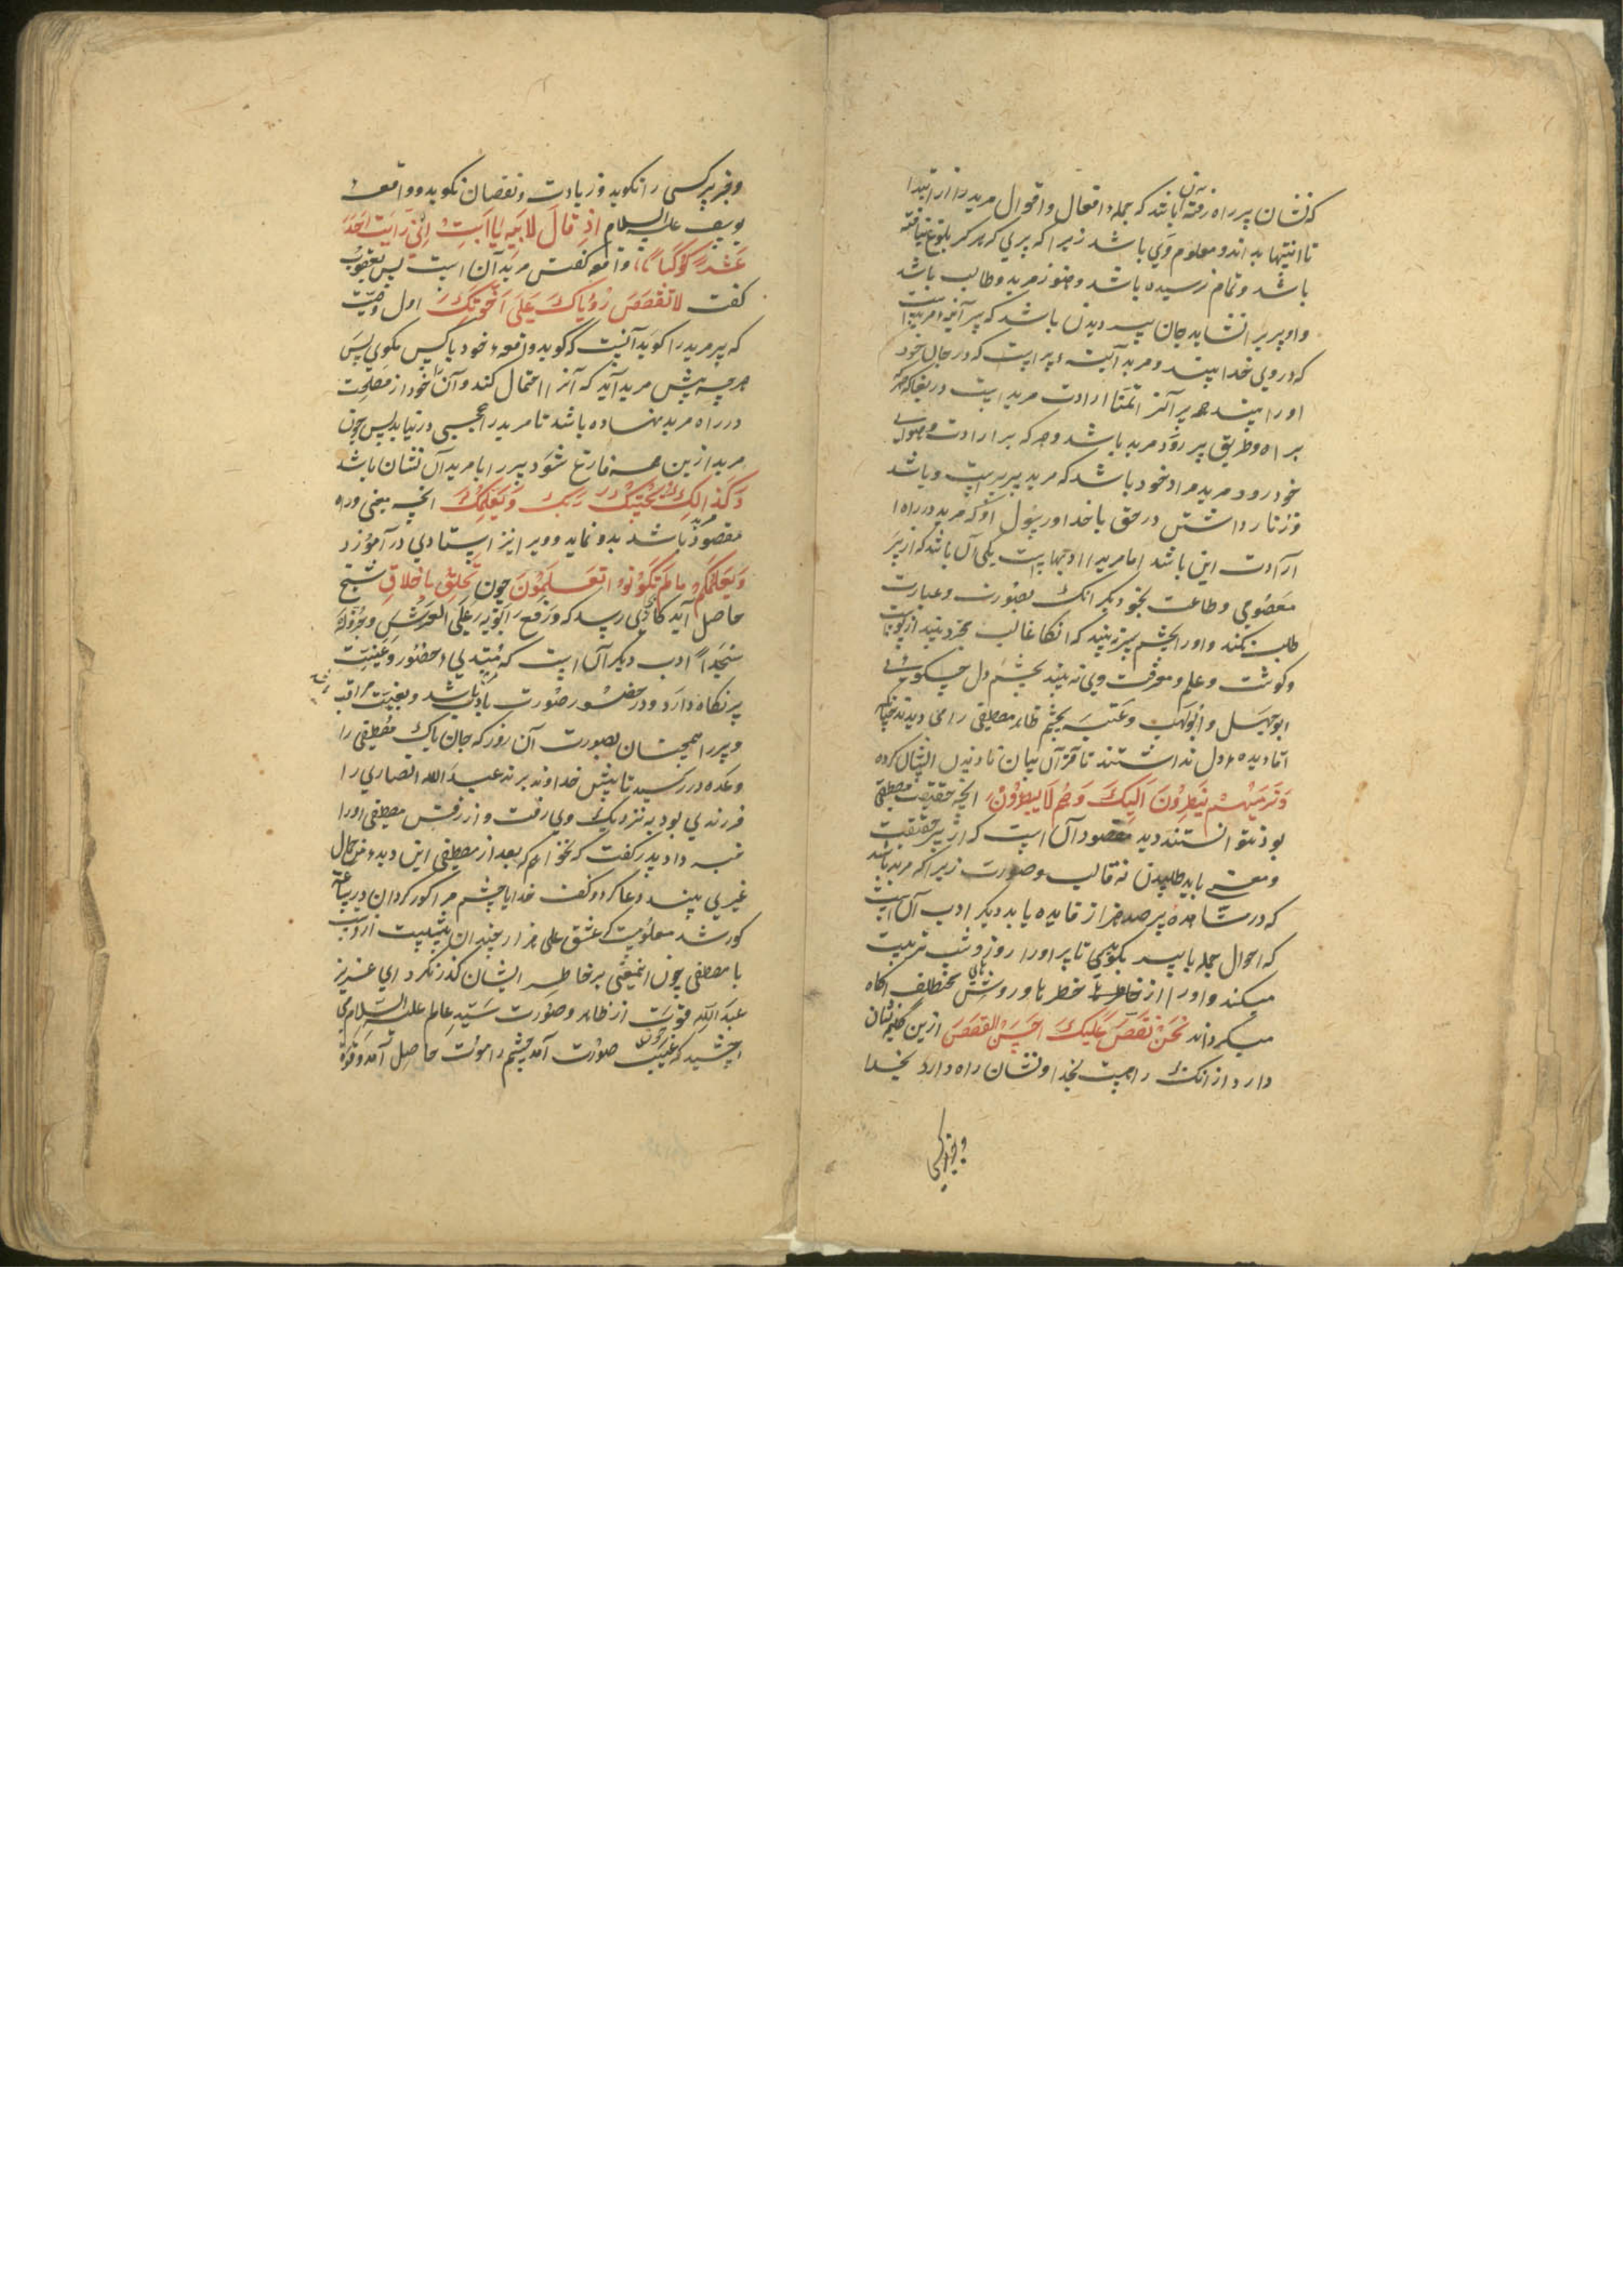 که نشان پیر راه رفته آن باشد که جمله افعال و اقوال مرید را از ابتدا
تا انتها بداند و معلوم وی باشد زیرا که پیری که هرگز بلوغ نیافته
باشد و تمام نرسیده باشد و هنوز مرید و طالب باشد
و او پیر را نشاید جان پیر دیدن باشد که پیر آینه مرید است
که در وی خدا بیند و مرید آینه پیر است که در جان خود
او را بیند همه پیران را تمنا ارادت مرید است دریغا که هر که
براه و طریق پیر رود مرید باشد و هر که بر ارادت و
خود رود مرید مراد خود باشد که مرید پیر پرست باشد
و زنار داشتن در حق با خدا و رسول او که مرید در راه
ارادت این باشد اما مرید را ادبهاست یکی آن باشد که از پیر
معصومی و طاعت نجوید دیگر آنک بصورت و عبارت
طلب نکند و او را بچشم سر نبیند که آنگاه قالب مجرد بیند از پوست
و گوشت و علم و معرفت وی نه بیند بچشم دل چه گویی
ابوجهل و ابولهب و عتبه بچشم ظاهر مصطفی را می دیدند
اما دیده دل نداشتند تا قرآن بیان نادیدن ایشان کرده
وَتَرَیهُمْ یَنظُرُونَ اِلَیکَ وَهُم لَا یُبصِرُونَ آنچه حقیقت مصطفی
بود نتوانستند دید مقصود آن است که از پیر حقیقت
و معنی باید طلبیدن نه قالب و صورت زیرا که مرید باشد
که در مشاهده پیر صد هزار فایده یابد دیگر ادب آن است
که احوال جمله با پیر بگوید تا پیر او را روز و شب تربیت
میکند و او را از خطرها و روشهای مختلف آگاه
میگرداند نَحنُ نَقُصُّ عَلَیکَ اَحسَنَ القَصَصِ ازین گلیم نشان
دارد از آنک راهست بخدا و نشان راه دارد بخدا
و جز پیر کسی
و جز پیر کسی را نگوید و زیادت و نقصان نگوید و واقعه
یوسف علیه السلام اِذ قَالَ لِاَبِیهِ یَا اَبَتِ اِنّی رَاَیتُ اَحَدَ
عَشَرَ کَوکَباً واقعه گفتن مرید آن است پس یعقوب
گفت لَا تَقصُص رُؤیَاکَ عَلَی اِخوَتِکَ اول وصیت
که پیر مرید را گوید آنست که گوید واقعه خود با کس مگوی پس
هر چه پیش مرید آید که آنرا احتمال کند و آن را خود از مصلحت
در راه مرید نهاده باشد تا مرید را عجبی در نیابد پس چون
مرید ازین همه فارغ شود پیر را با مرید آن نشان باشد
وَکَذَالِکَ یَجتَبِیکَ رَبُّکَ وَیُعَلِّمُکَ آنچه معنی و راه
مقصود مرید باشد بدو نماید و ویرا نیز استادی در آموزد
وَیُعَلِّمُکُم مَا لَم تَکُونُوا تَعلَمُونَ چون تَخَلُّق بِاَخلاقِ شیخ
حاصل آید کار بجایی رسد که وَرَفَعَ اَبَوَیهِ عَلَی العَرشِ وَخَرُّوا لَهُ
سُجَّداً ادب دیگر آن است که مبتدی حضور و غیبت
پیر نگاه دارد و در حضور صورت با ادب باشد و بغیبت مراقب باشد
و پیر را همچنان بصورت آن روز که جان پاک مصطفی را
وعده در رسید تا پیش خداوند برند عبدالله انصاری را
فرزندی بود به نزدیک وی رفت و از رفتن مصطفی او را
خبر داد پدر گفت که نخواهم که بعد از مصطفی این دیده من جمال
غیری بیند دعا کرد و گفت خدایا چشم مرا کور گردان در ساعت
کور شد معلوم است که عشق علی هزار چندان بیش است از ادب
با مصطفی چون این معنی بر خاطر ایشان گذر نکرد ای عزیز
عبدالله قوت از ظاهر و صورت سید عالم علیه السلام می
چشید که چون غیبت صورت آمد چشم را موت حاصل آمد و قوت